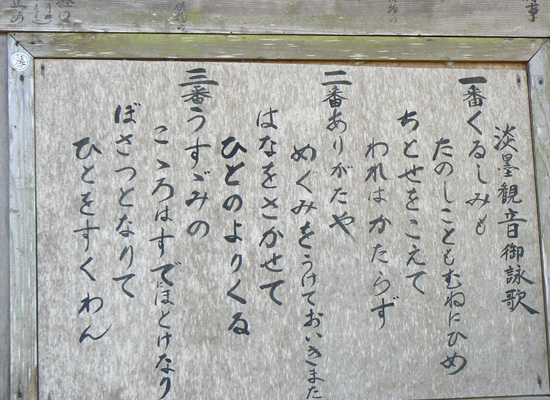 淡墨観音御詠歌
一番くるしみも
たのしこともむねにひめ
ちとせをこえて
われはかたらず
二番ありがたや
めぐみをうけておいきまた
はなをさかせて
ひとのよりくる
三番うすゞみの
こゝろはすでにほとけなり
ぼさつとなりて
ひとをすくわん